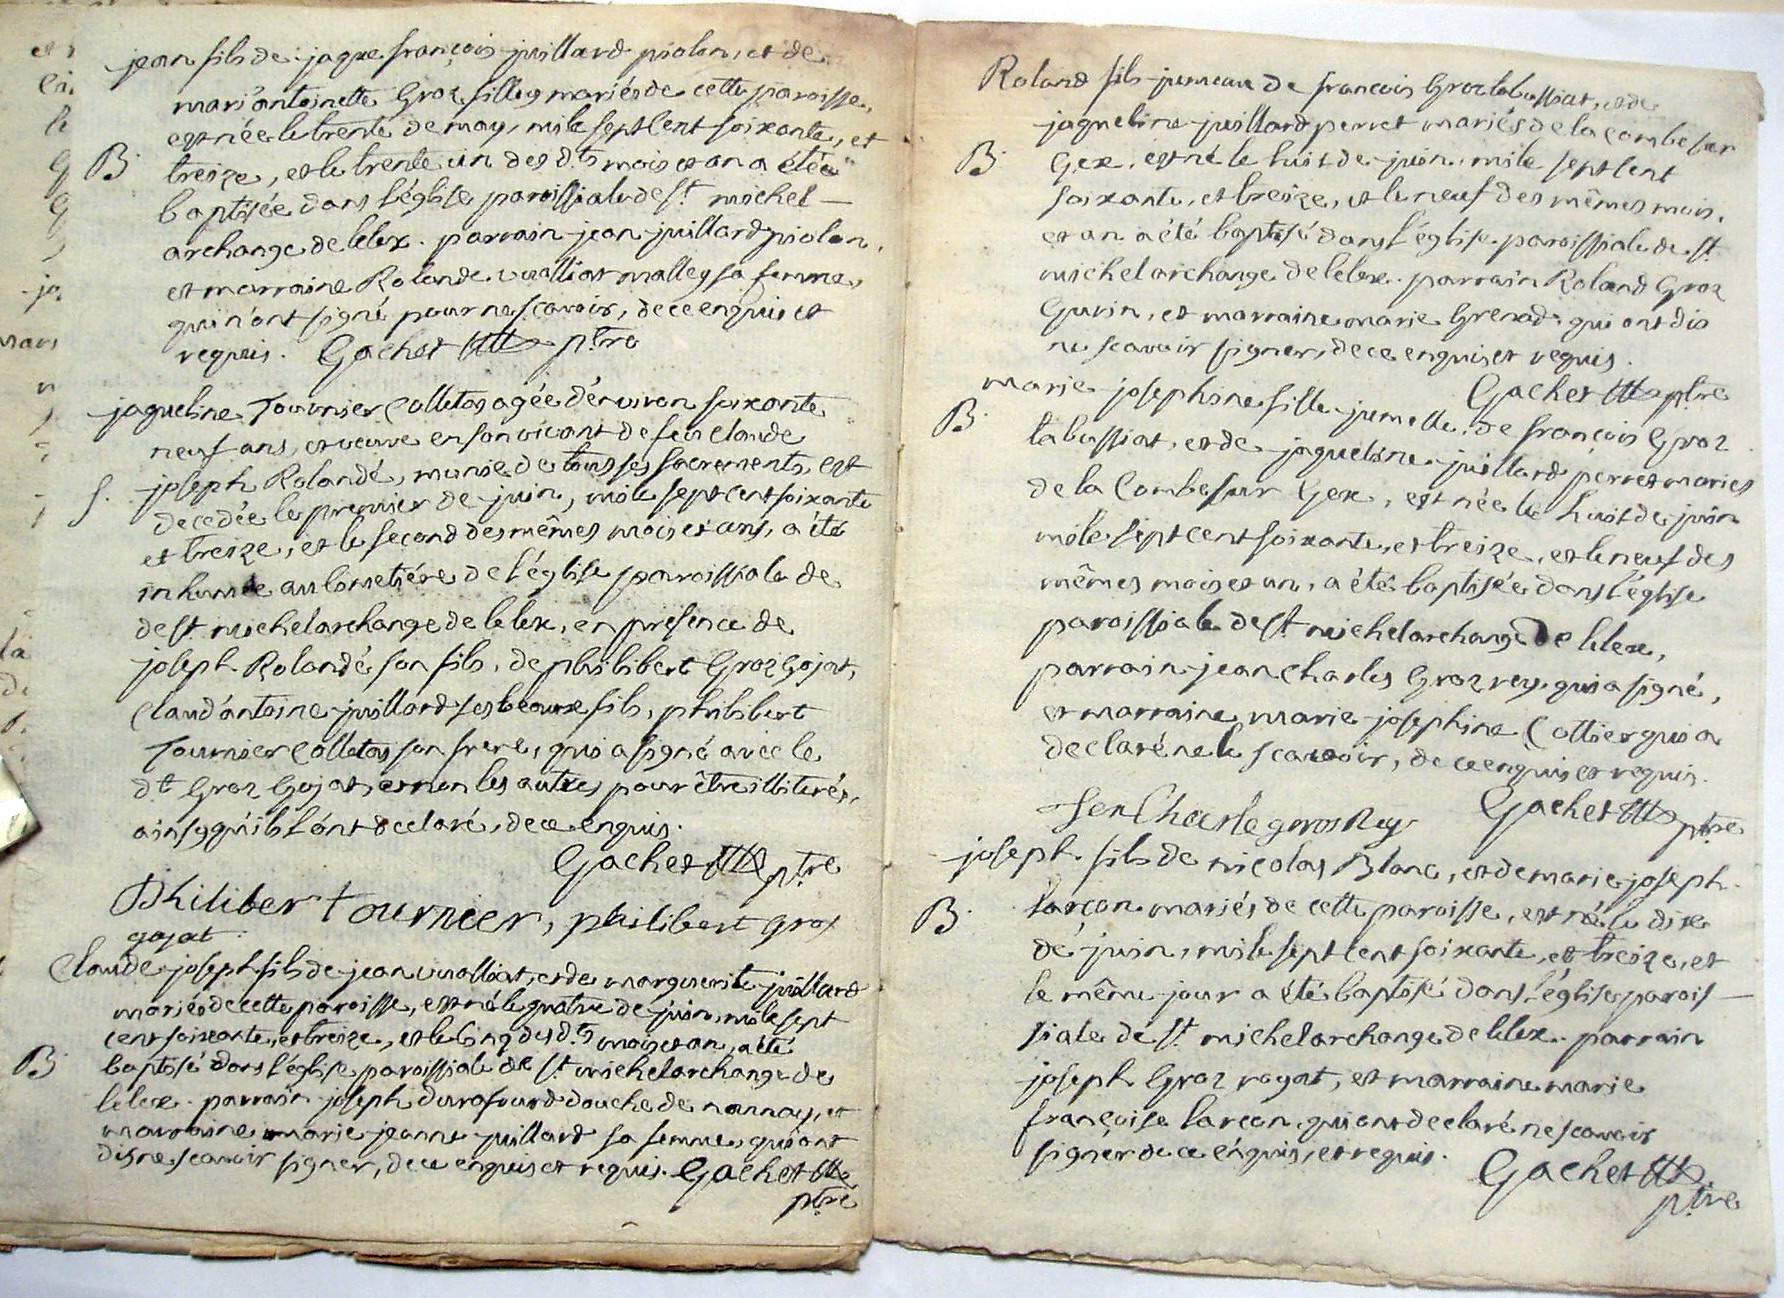 jean fils de jaque françois juillard piolon, et de
mari antoinette Groz filley mariés de cette paroisse,
est née le trente de may, mile sept cent soixante, et
B
treize, et le trente un des d.ts mois et an a étée
baptisée dans l'église paroissiale de st. michel
archange de lelex. parrain jean juillard piolon,
et marraine Rolande vualliat malley sa femme,
qui n'ont signé pour ne scavoir, de ce enquis et
requis. Gachet ptre
jaqueline Tournier Colletas agée d'environ soixante
neuf ans, et veuve en son vivant de feu claude
joseph Rolandé, munie de tous ses sacrements, est
S.
decedée le premier de juin, mile sept cent soixante
et treize, et le second des mêmes mois et ans, a été
inhumée au Cimetiére de l'église paroissiale de
de st. michel archange de lelex, en présence de
joseph Rolandé son fils, de philibert Groz Gojat,
Claud'antoine juillard ses beaux fils, philibert
Tournier Colletas son frere, qui a signé avec le
dt Groz Gojat, et non les autres pour être illiterés,
ainsy qu'ils l'ont declaré, de ce enquis.
Gachet ptre
Philiber tournier, philibert gros
gojat
Claude joseph fils de jean vualliat, et de marguerite juillard
mariés de cette paroisse, est né le quatre de juin, mile sept
cent soixante, et treize, et le Cinq des d.ts mois et an, a été
B
baptisé dans l'église paroissiale de st. michel archange de
lelex. parrain joseph durafourd douche de nannay, et
marraine marie jeanne juillard sa femme, qui ont
dis ne scavoir signer, de ce enquis et requis. Gachet
ptre
Roland fils jumeau de francois Groz labussiat, et de
jaqueline juillard perret mariés de la Combe sur
B
Gex, est né le huit de juin, mile sept cent
soixante, et treize, et le neuf des mêmes mois,
et an a été baptisé dans l'église paroissiale de st.
michel archange de lelex. parrain Roland Groz
Gurin, et marraine marie Grenad, qui ont dis
ne scavoir signer, de ce enquis et requis.
Gachet ptre
marie josephine fille jumelle de françois Groz
B
labussiat, et de jaqueline juillard perret mariés
de la Combe sur Gex, est née le huit de juin
mile sept cent soixante, et treize, et le neuf des
mêmes mois et an, a été baptisée dans l'église
paroissiale de st. michel archange De lelex,
parrain jean Charles Groz rey, qui a signé,
et marraine marie josephine Cottier qui a
declaré ne le scavoir, de ce enquis et requis.
Jen Charle gros Rey Gachet ptre
joseph fils de nicolas Blanc, et de marie joseph
B
larçon mariés de cette paroisse, est né le dix
de juin, mile sept cent soixante, et treize, et
le même jour a été baptisé dans l'église parois
siale de st. michel archange de lelex. parrain
joseph Groz rogat, et marraine marie
françoise larçon, qui ont declaré ne scavoir
signér de ce énquis, et requis. Gachet
ptre